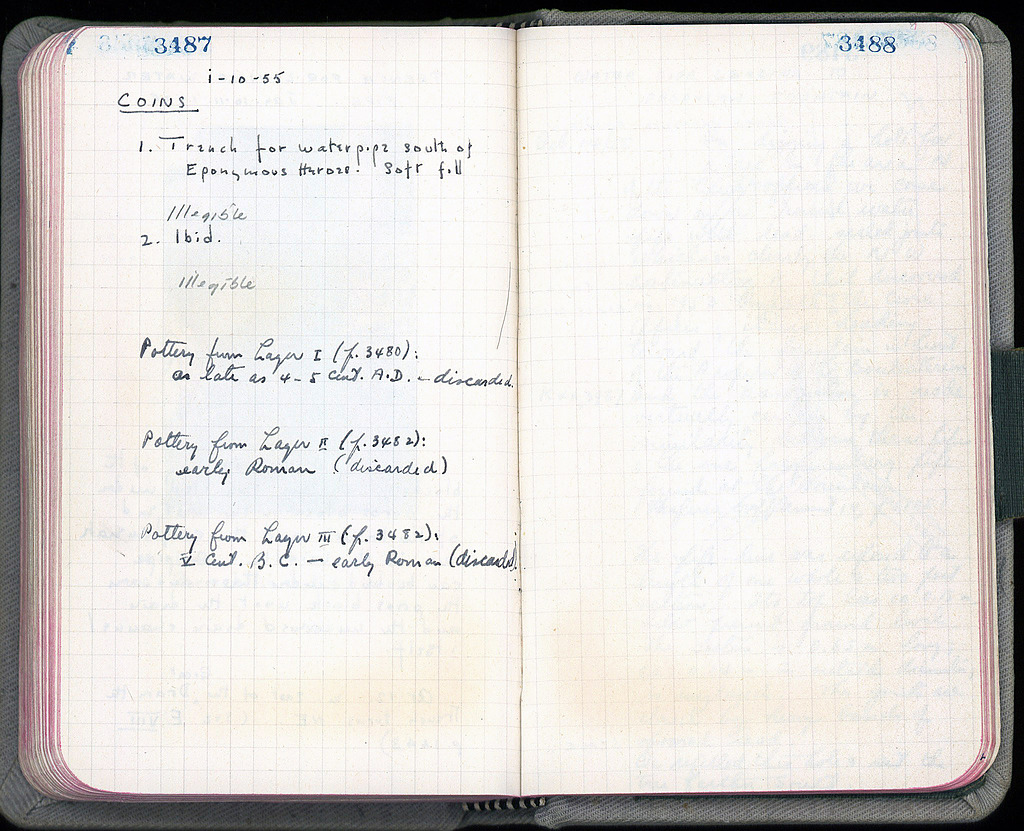 3487
1-10-55
COINS
1. Trench for waterpipe south of
Eponymous Heroes. Soft fill
Illegible
2. Ibid.
Illegible
Pottery from Layer I (p. 3480):
as late as 4-5 cent. A.D. - discarded.
Pottery from Layer II (p. 3482):
early Roman (discarded)
Pottery from Layer III (p. 3482):
V cent. B.C. — early Roman (discarded)
3488